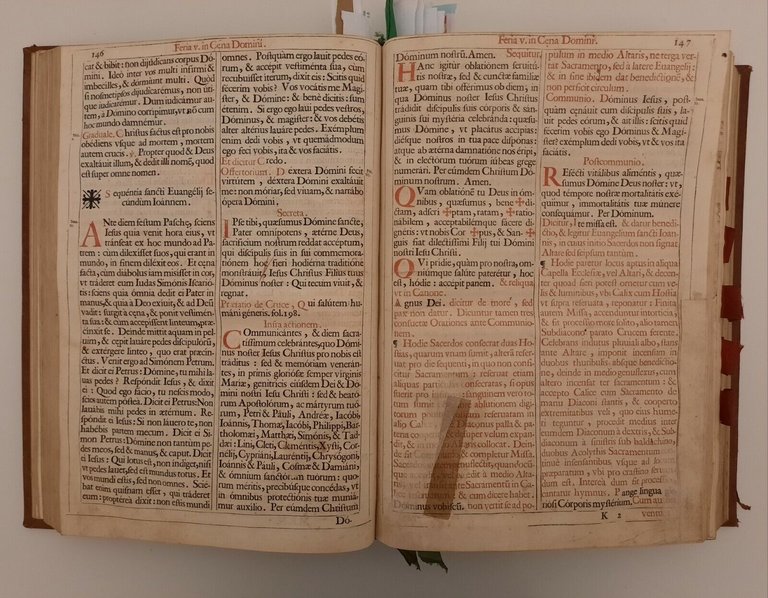 146
Feria v. in Cena Domini.
cat & bibit: non dijudicans corpus Dó-
mini. Ideò inter vos multi infirmi &
imbecilles, & dórmiunt multi. Quòd
si nosmetipsos dijudicaremus, non úti-
que judicaremur. Dum judicámur au-
tem, à Dómino corrípimur, ut non cum
hoc mundo damnémur.
Graduale. Christus factus est pro nobis
obédiens usque ad mortem, mortem
autem crucis. ℣. Propter quod & Deus
exaltávit illum, & dedit illi nomen, quod
est super omne nomen.
Sequéntia sancti Euangélij se-
cúndùm Ioánnem.
ANte diem festum Paschæ, sciens
Iesus quia venit hora eius, vt
tránseat ex hoc mundo ad Pa-
trem: cùm dilexísset suos, qui erant in
mundo, in finem diléxit eos. Et cena
facta, cùm diábolus iam misísset in cor,
vt tráderet eum Iudas Simónis Iscarió-
tis: sciens quia ómnia dedit ei Pater in
manus, & quia à Deo exívit, & ad Deũ
vadit: surgit à cena, & ponit vestimén-
ta sua: & cùm accepísset línteum, præ-
cínxit se. Deinde mittit aquam in pel-
uim, & cepit lauáre pedes discipulórũ,
& extérgere línteo, quo erat præcín-
ctus. Venit ergo ad Simónem Petrum.
Et dicit ei Petrus: Dómine, tu mihi la-
uas pedes? Respóndit Iesus, & dixit
ei: Quod ego fácio, tu nescis modò,
scies autem póstea. Dicit ei Petrus: Non
lauábis mihi pedes in ætérnum. Re-
spóndit ei Iesus: Si non láuero te, non
habébis partem mecum. Dicit ei Si-
mon Petrus: Dómine non tantùm pe-
des meos, sed & manus, & caput. Dicit
ei Iesus: Qui lotus est, non índiget, nisi
vt pedes lauet, sed est mundus totus. Et
vos mundi estis, sed non omnes. Scié-
bat enim quisnam esset, qui tráderet
eum: proptérea dixit: non estis mundi
omnes. Postquàm ergo lauit pedes eó-
rum, & accépit vestiménta sua, cùm
recubuísset íterum, dixit eis: Scitis quid
fécerim vobis? Vos vocátis me Magí-
ster, & Dómine: & benè dícitis: sum
étenim. Si ergo ego laui pedes vestros,
Dóminus, & magíster: & vos debétis
alter altérius lauáre pedes. Exémplum
enim dedi vobis, vt quemádmodum
ego feci vobis, ita & vos faciátis.
Et dicitur Credo.
Offertorium. Déxtera Dómini fecit
virtútem, déxtera Dómini exaltávit
me: non móriar, sed viuam, & narrábo
ópera Dómini.
Secreta.
IPse tibi, quæsumus Dómine sancte,
Pater omnípotens, ætérne Deus,
sacrifícium nostrum reddat accéptum,
qui discípulis suis in sui commemora-
tiónem hoc fíeri hodiérna traditióne
monstráuit, Iesus Christus Fílius tuus
Dóminus noster: Qui tecum viuit, &
regnat.
Præfatio de Cruce, Qui salútem hu-
máni géneris. fol. 198.
Infra actionem.
COmmunicántes, & diem sacra-
tíssimum celebrántes, quo Dómi-
nus noster Iesus Christus pro nobis est
tráditus: sed & memóriam venerán-
tes, in primis gloriósæ semper vírginis
Maríæ, genitrícis eiúsdem Dei & Dó-
mini nostri Iesu Christi: sed & beató-
rum Apostolórum, ac mártyrum tuó-
rum, Petri & Pauli, Andréæ, Iacóbi,
Ioánnis, Thomæ, Iacóbi, Philíppi, Bar-
tholomæi, Matthæi, Simónis, & Tad-
dæi: Lini, Cleti, Cleméntis, Xysti, Cor-
nélij, Cypriáni, Lauréntij, Chrysógoni,
Ioánnis & Pauli, Cosmæ & Damiáni,
& ómnium sanctórum tuórum: quo-
rum méritis, precibúsque concédas, vt
in ómnibus protectiónis tuæ muniá-
mur auxílio. Per eúmdem Christum
Dó-
Feria v. in Cena Domini.
147
Dóminum nostrũ. Amen. Sequitur,
HAnc ígitur oblatiónem seruitú-
tis nostræ, sed & cunctæ famíliæ
tuæ, quam tibi offérimus ob diem, in
qua Dóminus noster Iesus Christus
trádidit discípulis suis córporis & sán-
guinis sui mystéria celebránda: quæsu-
mus Dómine, vt placátus accípias:
diésque nostros in tua pace dispónas:
atque ab ætérna damnatióne nos éripi,
& in electórum tuórum iúbeas grege
numerári. Per eúmdem Christum Dó-
minum nostrum. Amen.
QVam oblatiónem tu Deus in óm-
nibus, quæsumus, bene✠dí-
ctam, adscrí✠ptam, ratam, ✠ratio-
nábilem, acceptabilémque fácere di-
gnéris: vt nobis Cor✠pus, & San✠
guis fiat dilectíssimi Fílij tui Dómini
nostri Iesu Christi.
QVi prídie, quàm pro nostra, om-
niúmque salúte paterétur, hoc
est, hódie: accépit panem. & reliqua
vt in Canone.
Agnus Dei. dicitur de more, sed
pax non datur. Dicuntur tamen tres
consuetæ Orationes ante Communio-
nem.
¶ Hodie Sacerdos consecrat duas Ho-
stias, quarum vnam sumit, alterã reser-
uat pro die sequenti, in quo non consi-
Dóminus vobíscum. non vertit se ad po-
K 2
pulum in medio Altaris, ne terga ver-
tat Sacramento, sed à latere Euangelij:
& in fine ibídem dat benedictionẽ, &
non perficit circulum.
Communio. Dóminus Iesus, post-
quàm cenáuit cum discípulis suis, la-
uit pedes eórum, & ait illis: scitis quid
fécerim vobis ego Dóminus & Magí-
ster? exémplum dedi vobis, vt & vos ita
faciátis.
Postcommunio.
REfécti vitálibus aliméntis, quæsu-
mus Dómine Deus noster: vt,
quod témpore nostræ mortalitátis exé-
quimur, immortalitátis tuæ múnere
consequámur. Per Dóminum.
Dicitur, Ite missa est. & datur benedi-
ctio, & legitur Euangelium sancti Ioan-
nis, in cuius initio Sacerdos non signat
Altare sed seipsum tantum.
¶ Hodie paretur locus aptus in aliqua
Capella Ecclesiæ, vel Altari, & decen-
ter quoad fieri potest ornetur cum ve-
lis & luminibus, vbi Calix cum Hostia
vt supra reseruata, reponatur: Finita
autem Missa, accenduntur intorticia,
& fit processio more solito, alio tamen
Subdiacono parato Crucem deferente.
Celebrans indutus pluuiali albo, stans
ante Altare, imponit incensum in
duobus thuribulis absque benedictio-
ne, deinde in medio genuflexus, cum
altero incensat ter Sacramentum: &
accepto Calice cum Sacramento de
manu Diaconi stantis, & cooperto
extremitatibus veli, quo eius hume-
ri teguntur, procedit medius inter
eumdem Diaconum à dextris, & Sub-
diaconum à sinistris sub baldachino,
duobus Acolythis Sacramentum
continuè incensantibus vsque ad locum
præparatum, vbi pro crastino seruan-
dum est. Interea dum fit processio
cantatur hymnus. Pange lingua
gloriósi Córporis mystérium, Cum au-
ventum